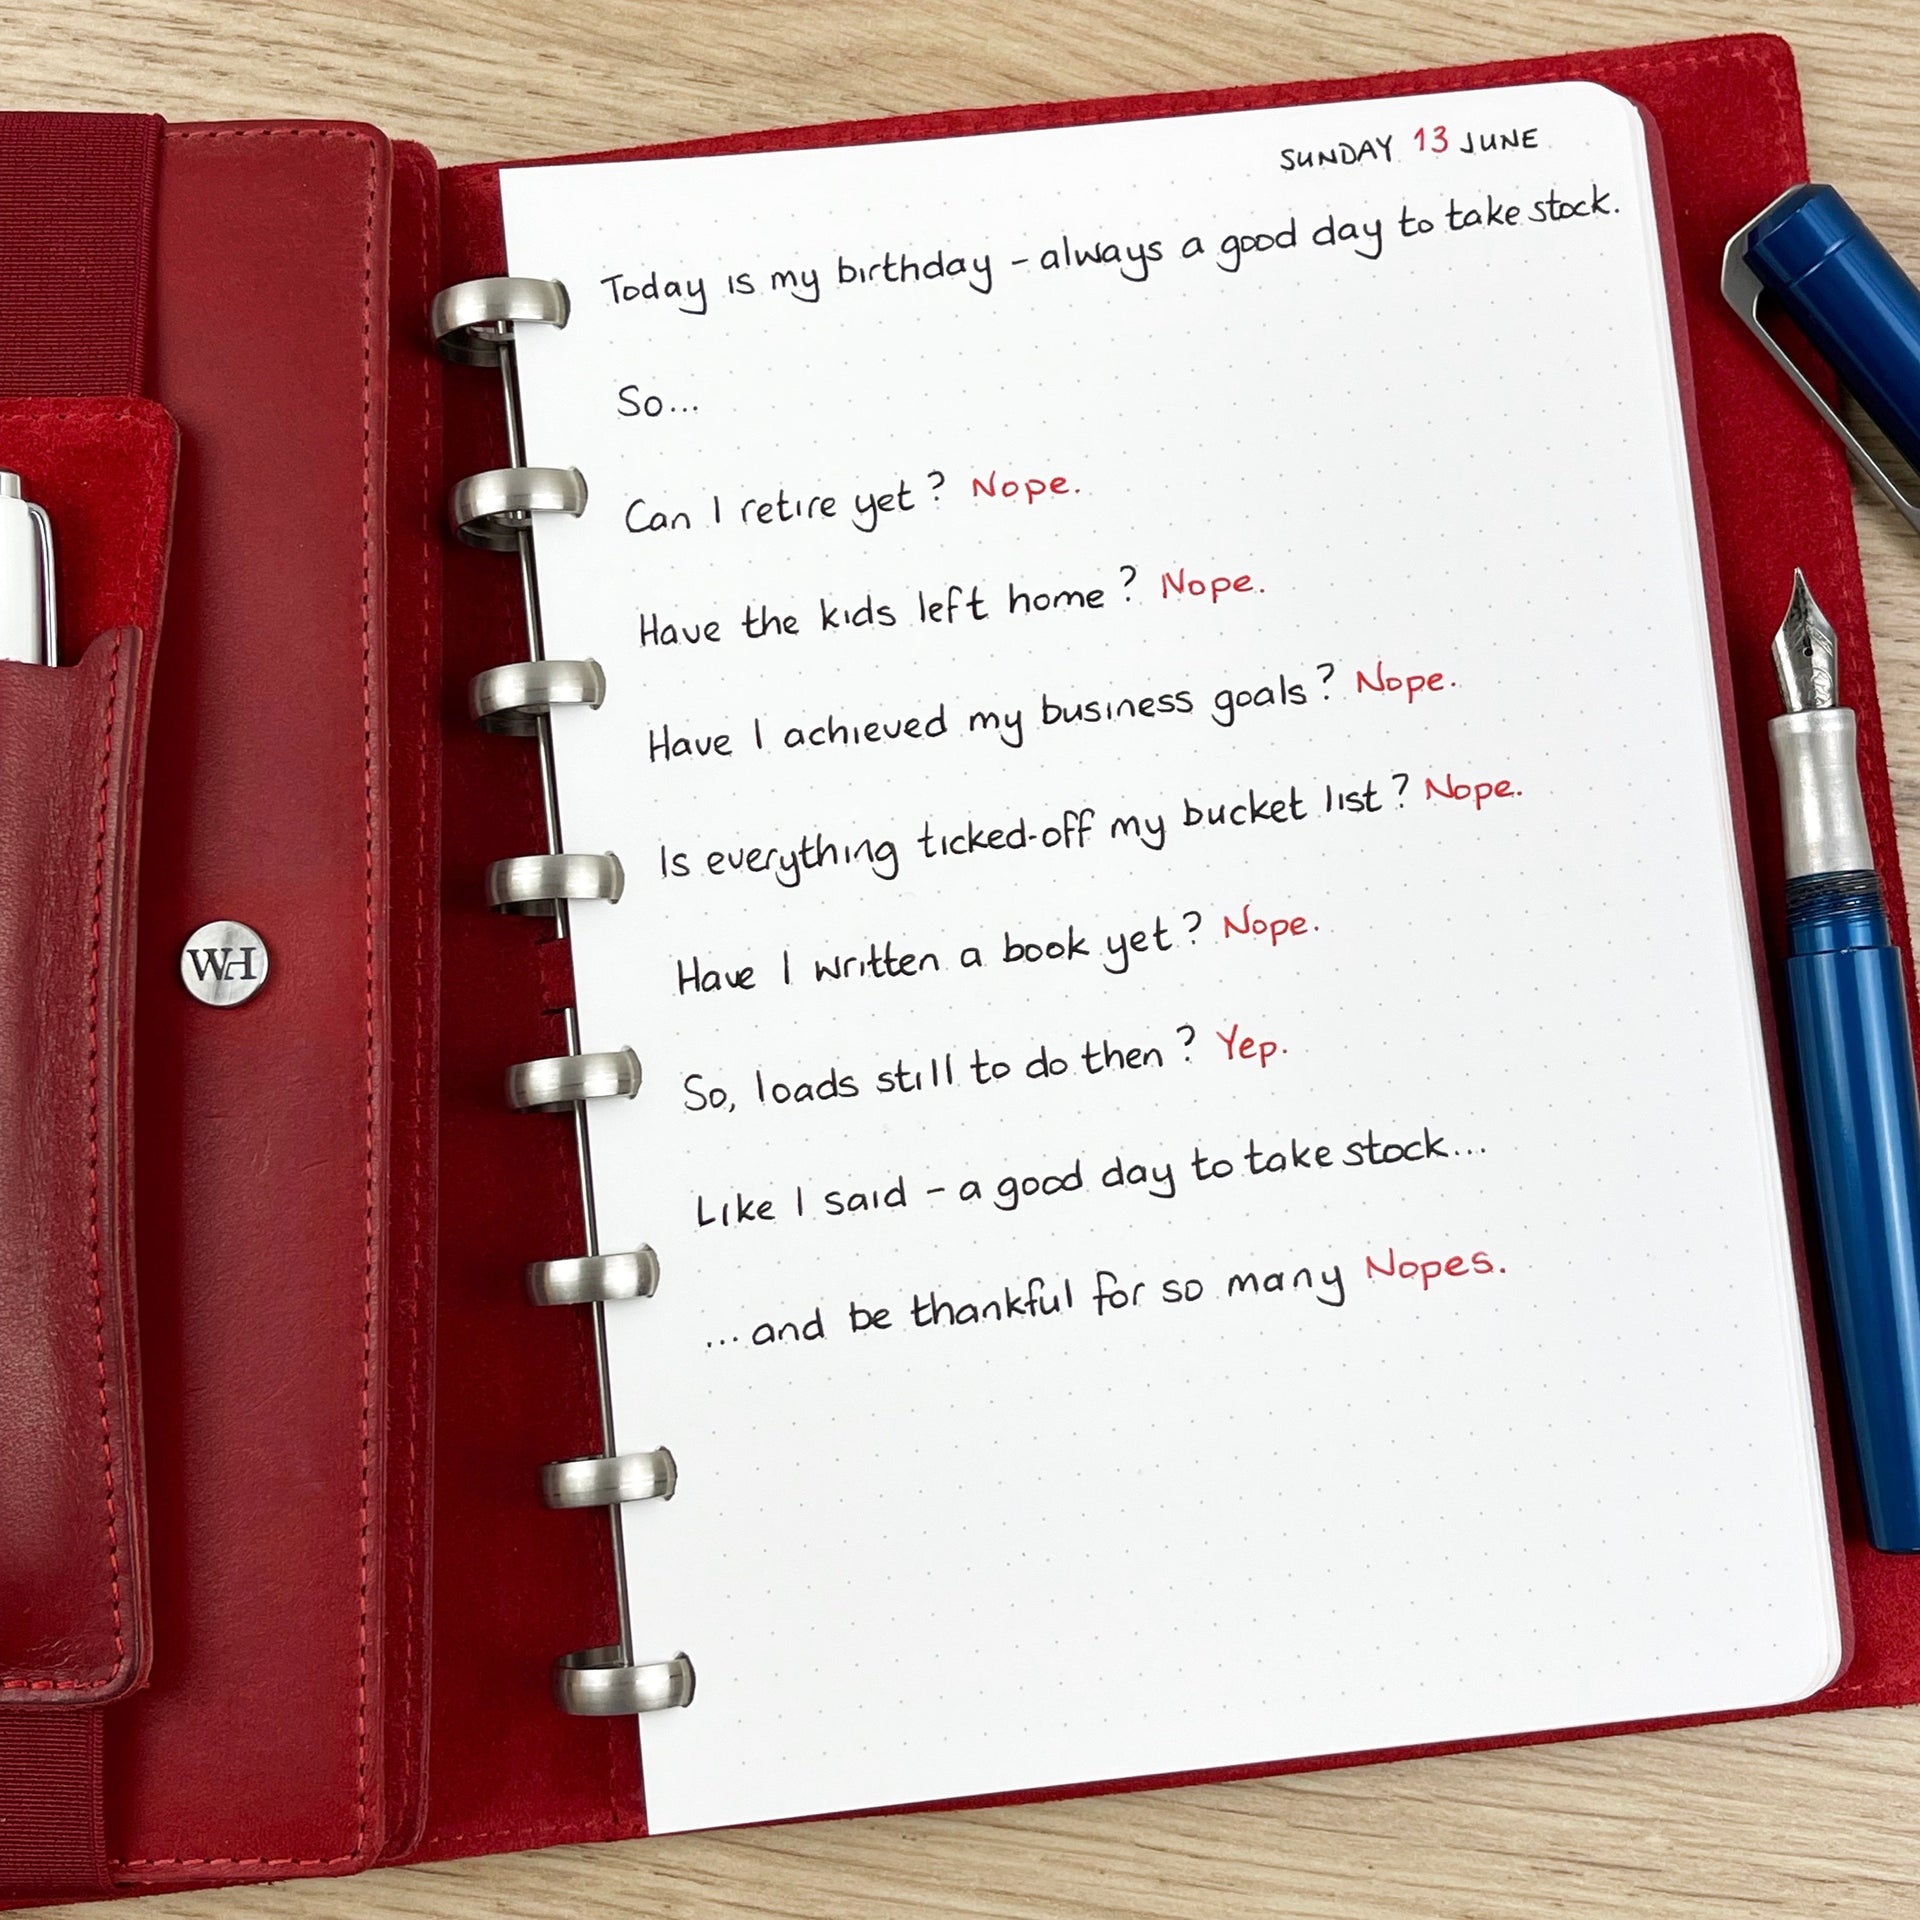 SUNDAY 13 JUNE
Today is my birthday - always a good day to take stock.
So...
Can I retire yet? Nope.
Have the kids left home? Nope.
Have I achieved my business goals? Nope.
Is everything ticked-off my bucket list? Nope.
Have I written a book yet? Nope.
So, loads still to do then? Yep.
Like I said - a good day to take stock...
...and be thankful for so many Nopes.
WH